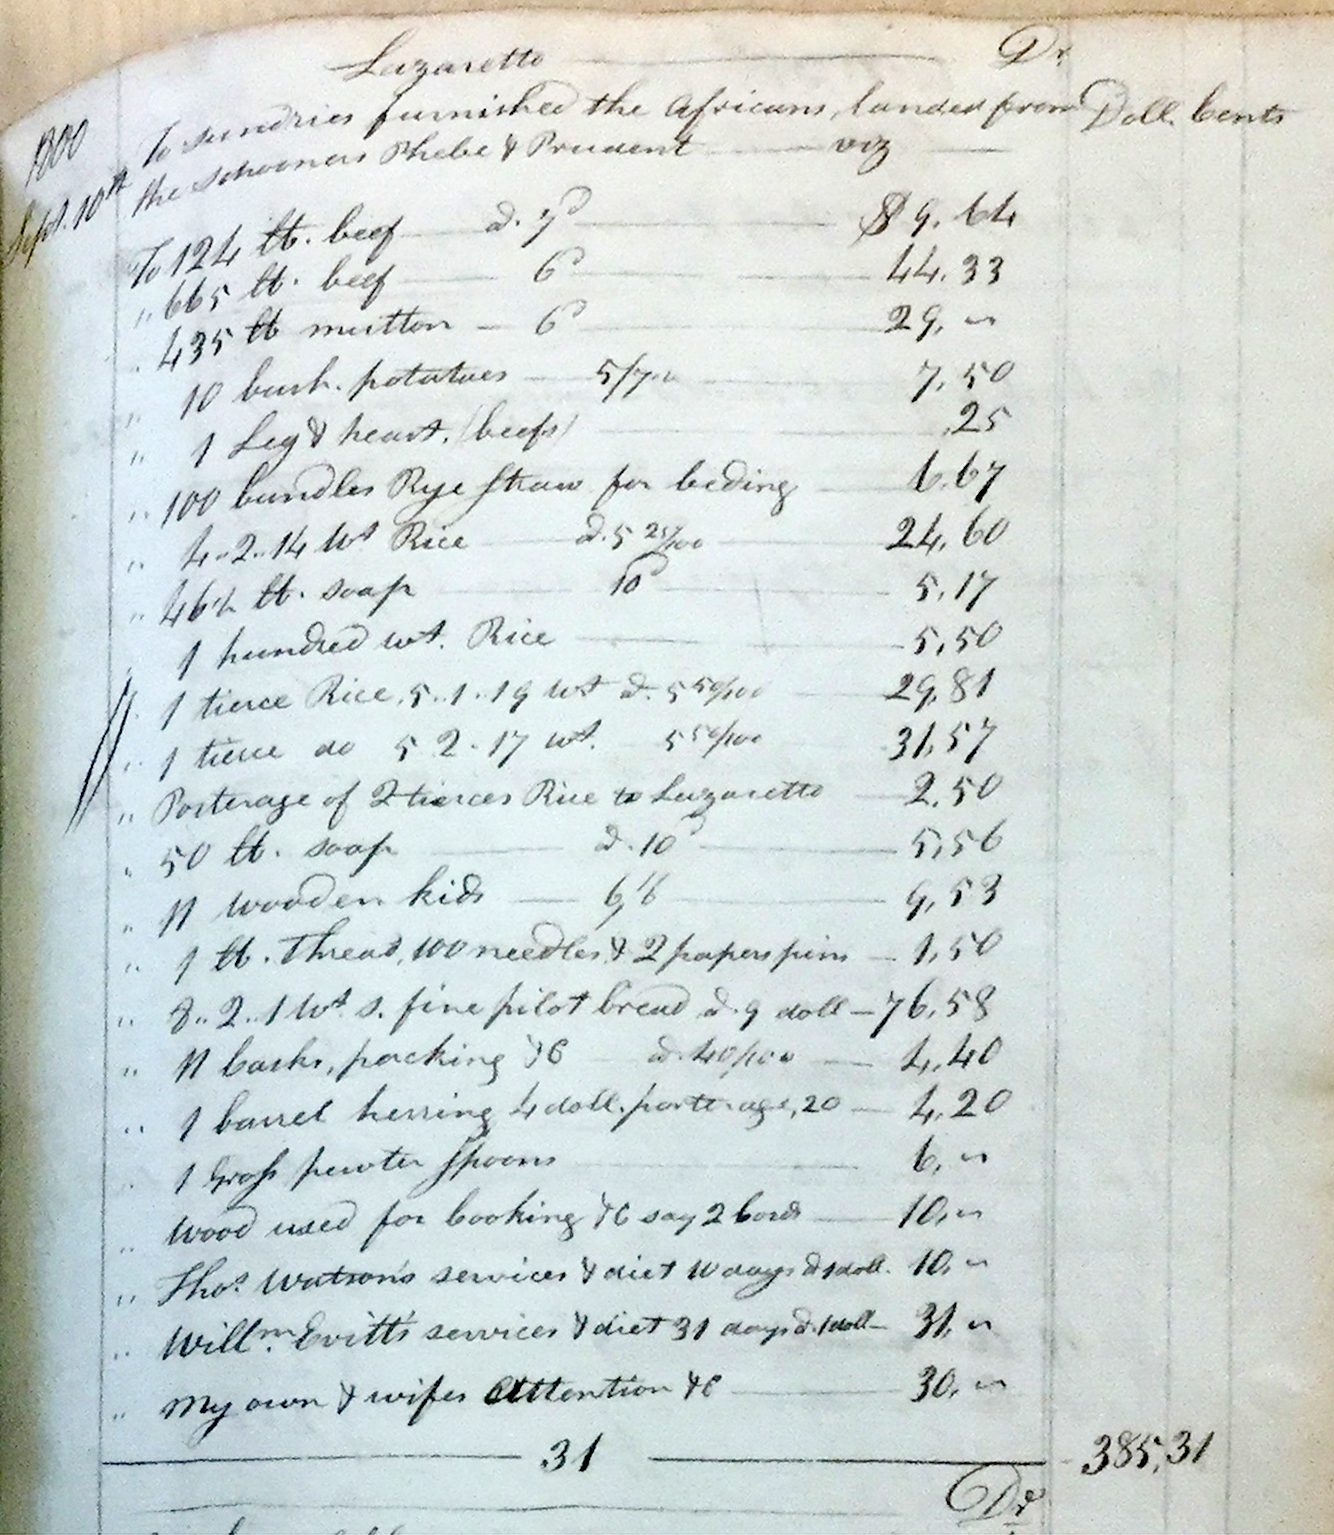 Lazaretto Dr.
1800 To sundries furnished the Africans, landed from Doll. Cents
Sept. 10th the schooners Phebe & Prudent viz
To 124 lb. beef a. 7d $ 9.64
" 665 lb. beef 6d 44.33
" 435 lb mutton 6d 29. "
" 10 bush. potatoes 5/7½ 7.50
" 1 Leg & heart. (beefs) .25
" 100 bundles Rye straw for beding 6.67
" 4..2..14 wt Rice a. 5 25/100 24,60
" 46½ lb. soap 10d 5,17
" 1 hundred wt. Rice 5,50
" 1 tierce Rice, 5..1..19 wt a. 5 50/100 29,81
" 1 tierce do 5 2..17 wt. 5 50/100 31,57
" Porterage of 2 tierces Rice to Lazaretto 2,50
" 50 lb. soap a. 10d 5,56
" 11 wooden kids 6/6 9,53
" 1 lb. Thread, 100 needles, & 2 papers pins 1,50
" 8..2..1 wt s. fine pilot bread a. 9 doll 76,58
" 11 Casks, packing &c a. 40/100 4,40
" 1 barrel herring 4 doll. porterage, 20 4,20
" 1 Gross pewter spoons 6, "
" Wood used for Cooking &c say 2 Cords 10, "
" Thos. Watson's services & diet 10 days a 1 doll. 10, "
" Willm. Evitt's services & diet 31 days a. 1 doll 31, "
" My own & wifes Attention &c 30, "
31 385,31
Dr